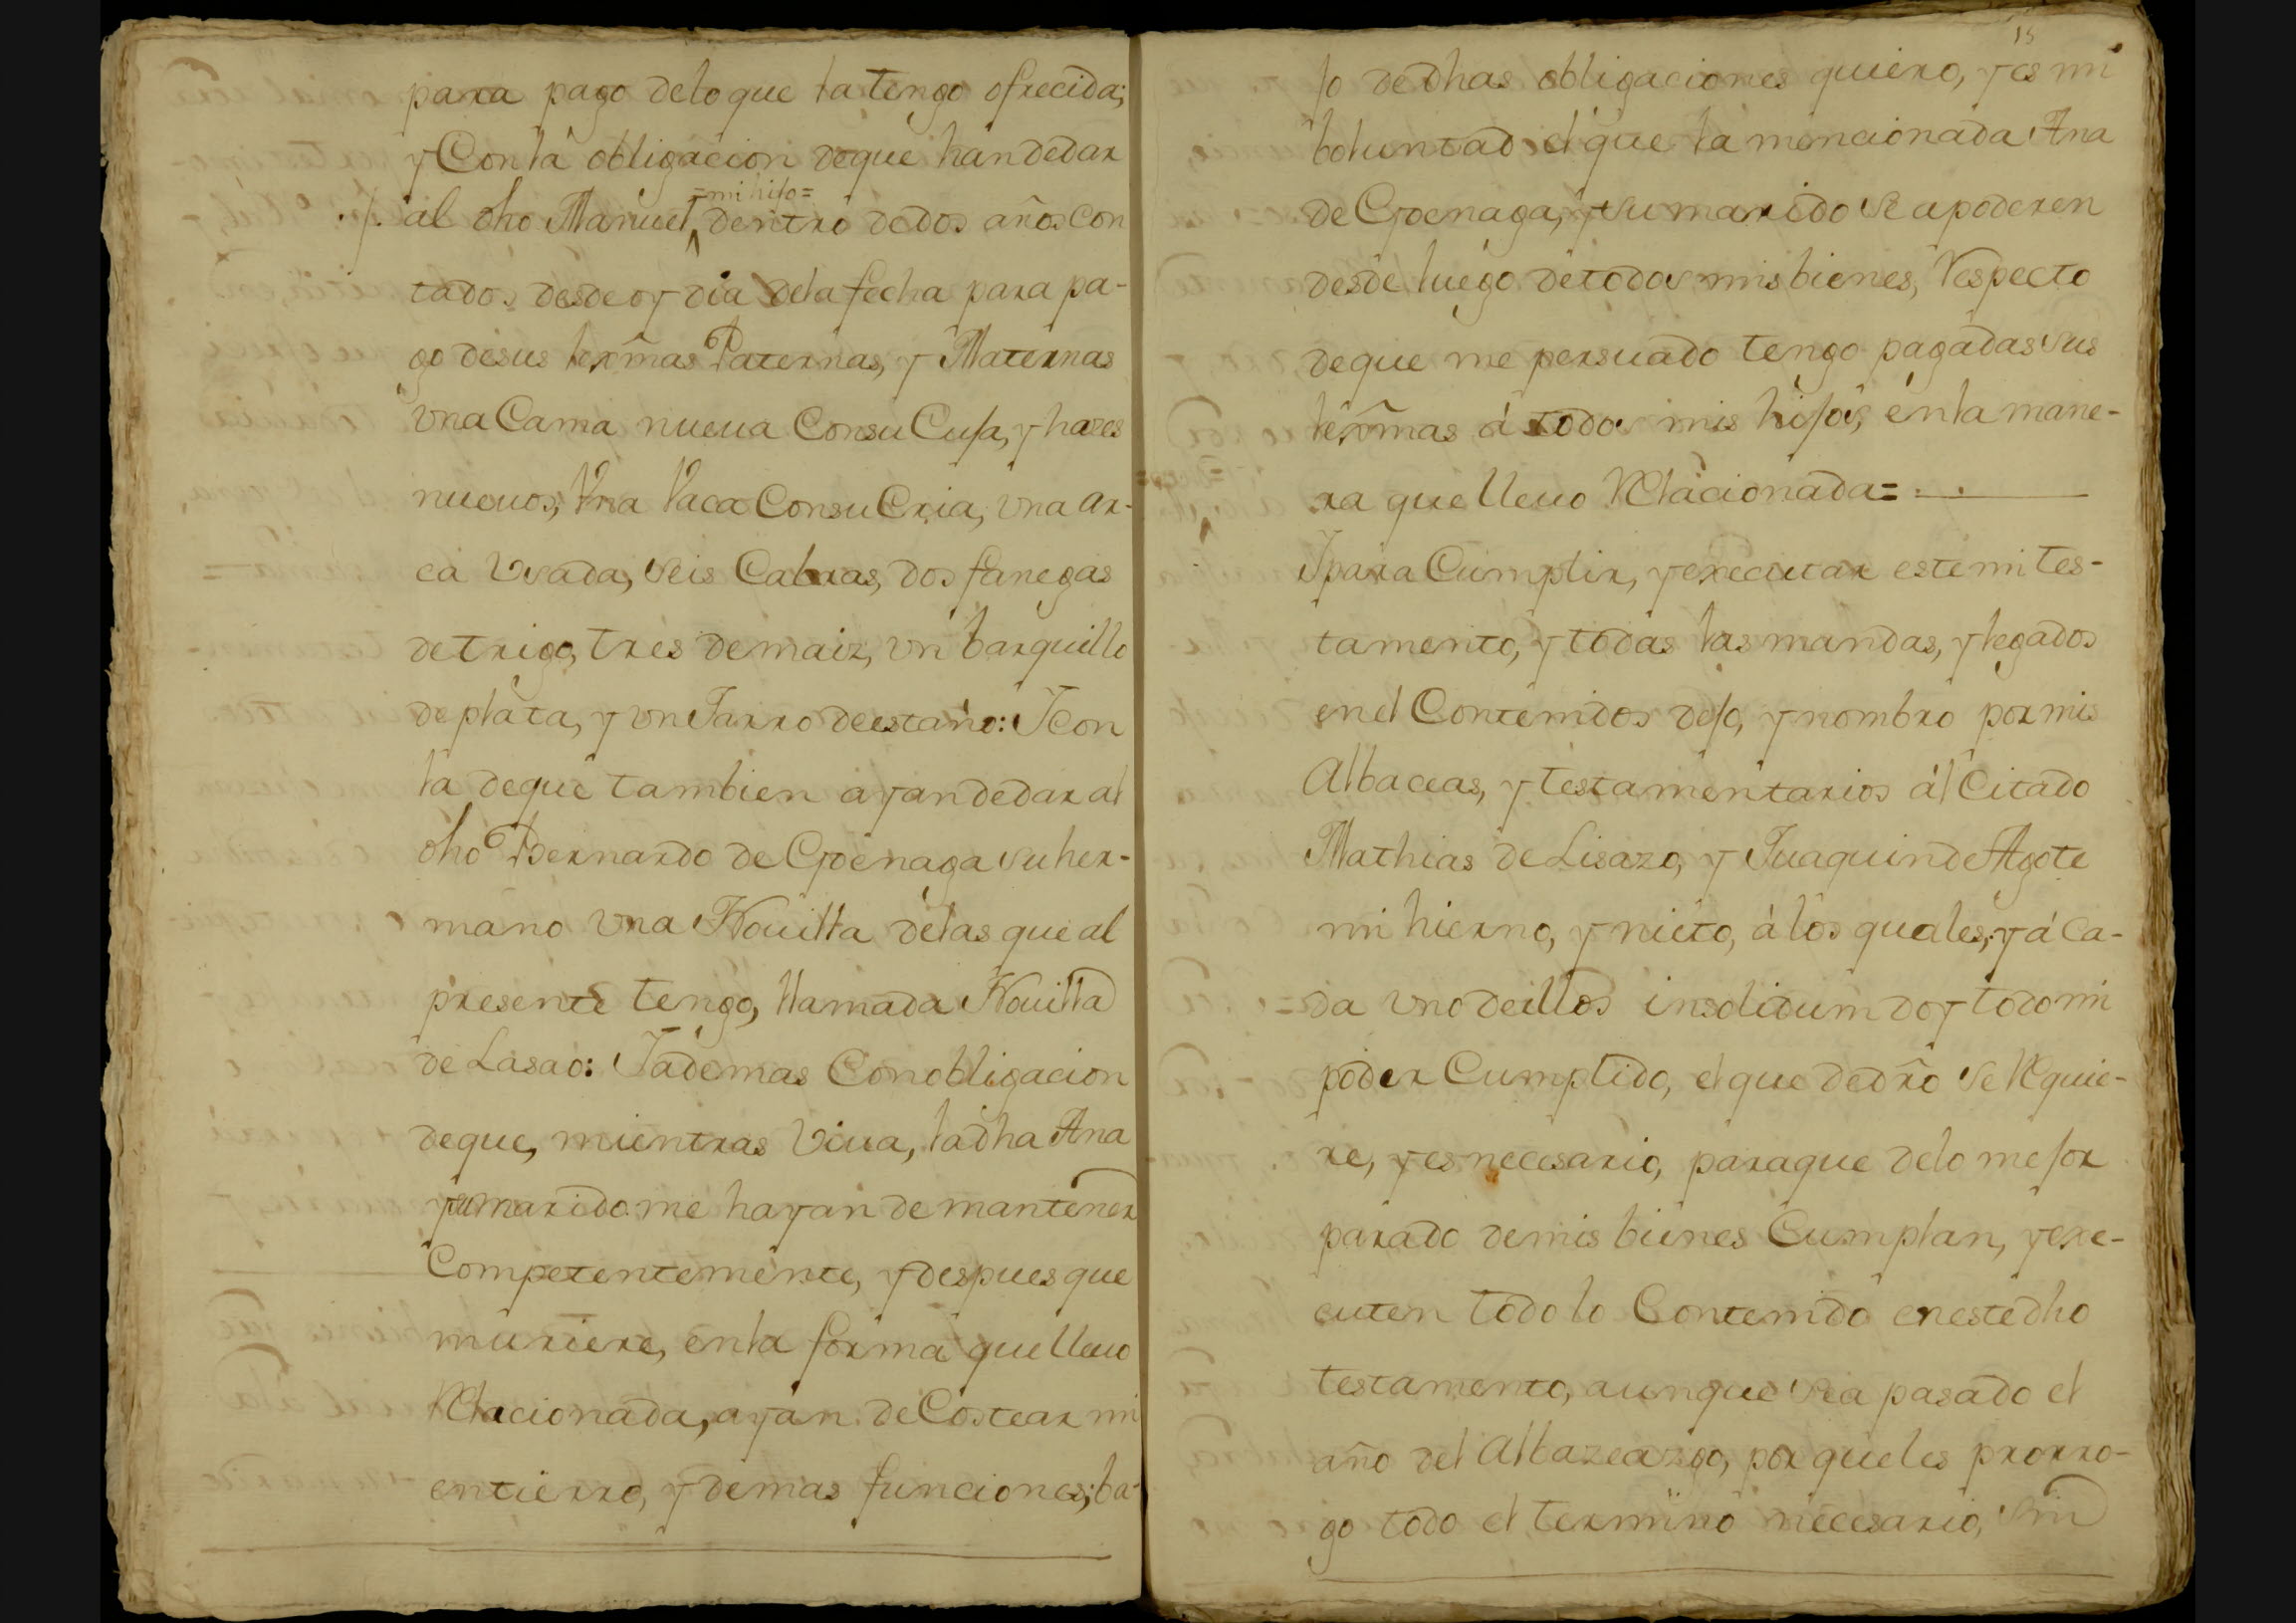 para pago delo que la tengo ofrecida;
y Con la obligacion deque han dedar
=mi hijo=
./. al dho Manuel, dentro de dos años con
tados desde oy dia dela fecha para pa-
go desus lexmas Paternas, y Maternas
vna Cama nueua Consu Cuja, y hazes
nueuos, Vna Vaca Consu Cria, vna ar-
ca Vsada, seis Cabras, dos fanegas
detrigo, tres demaiz, vn barquillo
de plata, y vn Jarro deestaño: Y con
la deque tambien ayan dedar al
dho Bernardo de Goenaga su her-
mano vna Nouilla delas que al
presente tengo, llamada Nouilla
de Lasao: Y ademas Con obligacion
deque, mientras Viua, la dha Ana
y su marido me hayan de mantener
Competentemente, y despues que
muriere, enla forma que lleuo
Relacionada, ayan de Costear mi
entierro, y demas funciones; ba-
15
jo de dhas obligaciones quiero, y es mi
boluntad el que la mencionada Ana
de Goenaga, y su marido se apoderen
desde luego detodos mis bienes, Respecto
deque me persuado tengo pagadas sus
lexmas á todos mis hijos, enla mane-
ra que lleuo Relacionada=
Y para Cumplir, y executar este mi tes-
tamento, y todas las mandas, y legados
en el Contenidos dejo, y nombro por mis
Albaceas, y testamentarios ál Citado
Mathias de Lisazo, y Juaquin de Agote
mi hierno, y nieto, á los quales, y á ca-
da vno deellos insolidum doy todo mi
poder Cumplido, el que de dro se Requie-
re, y es necesario, paraque delo mejor
parado demis bienes Cumplan, y exe-
cuten todo lo Contenido eneste dho
testamento, aunque sea pasado el
año del Albazeazgo, por que les prorro-
go todo el termino necesario, sin